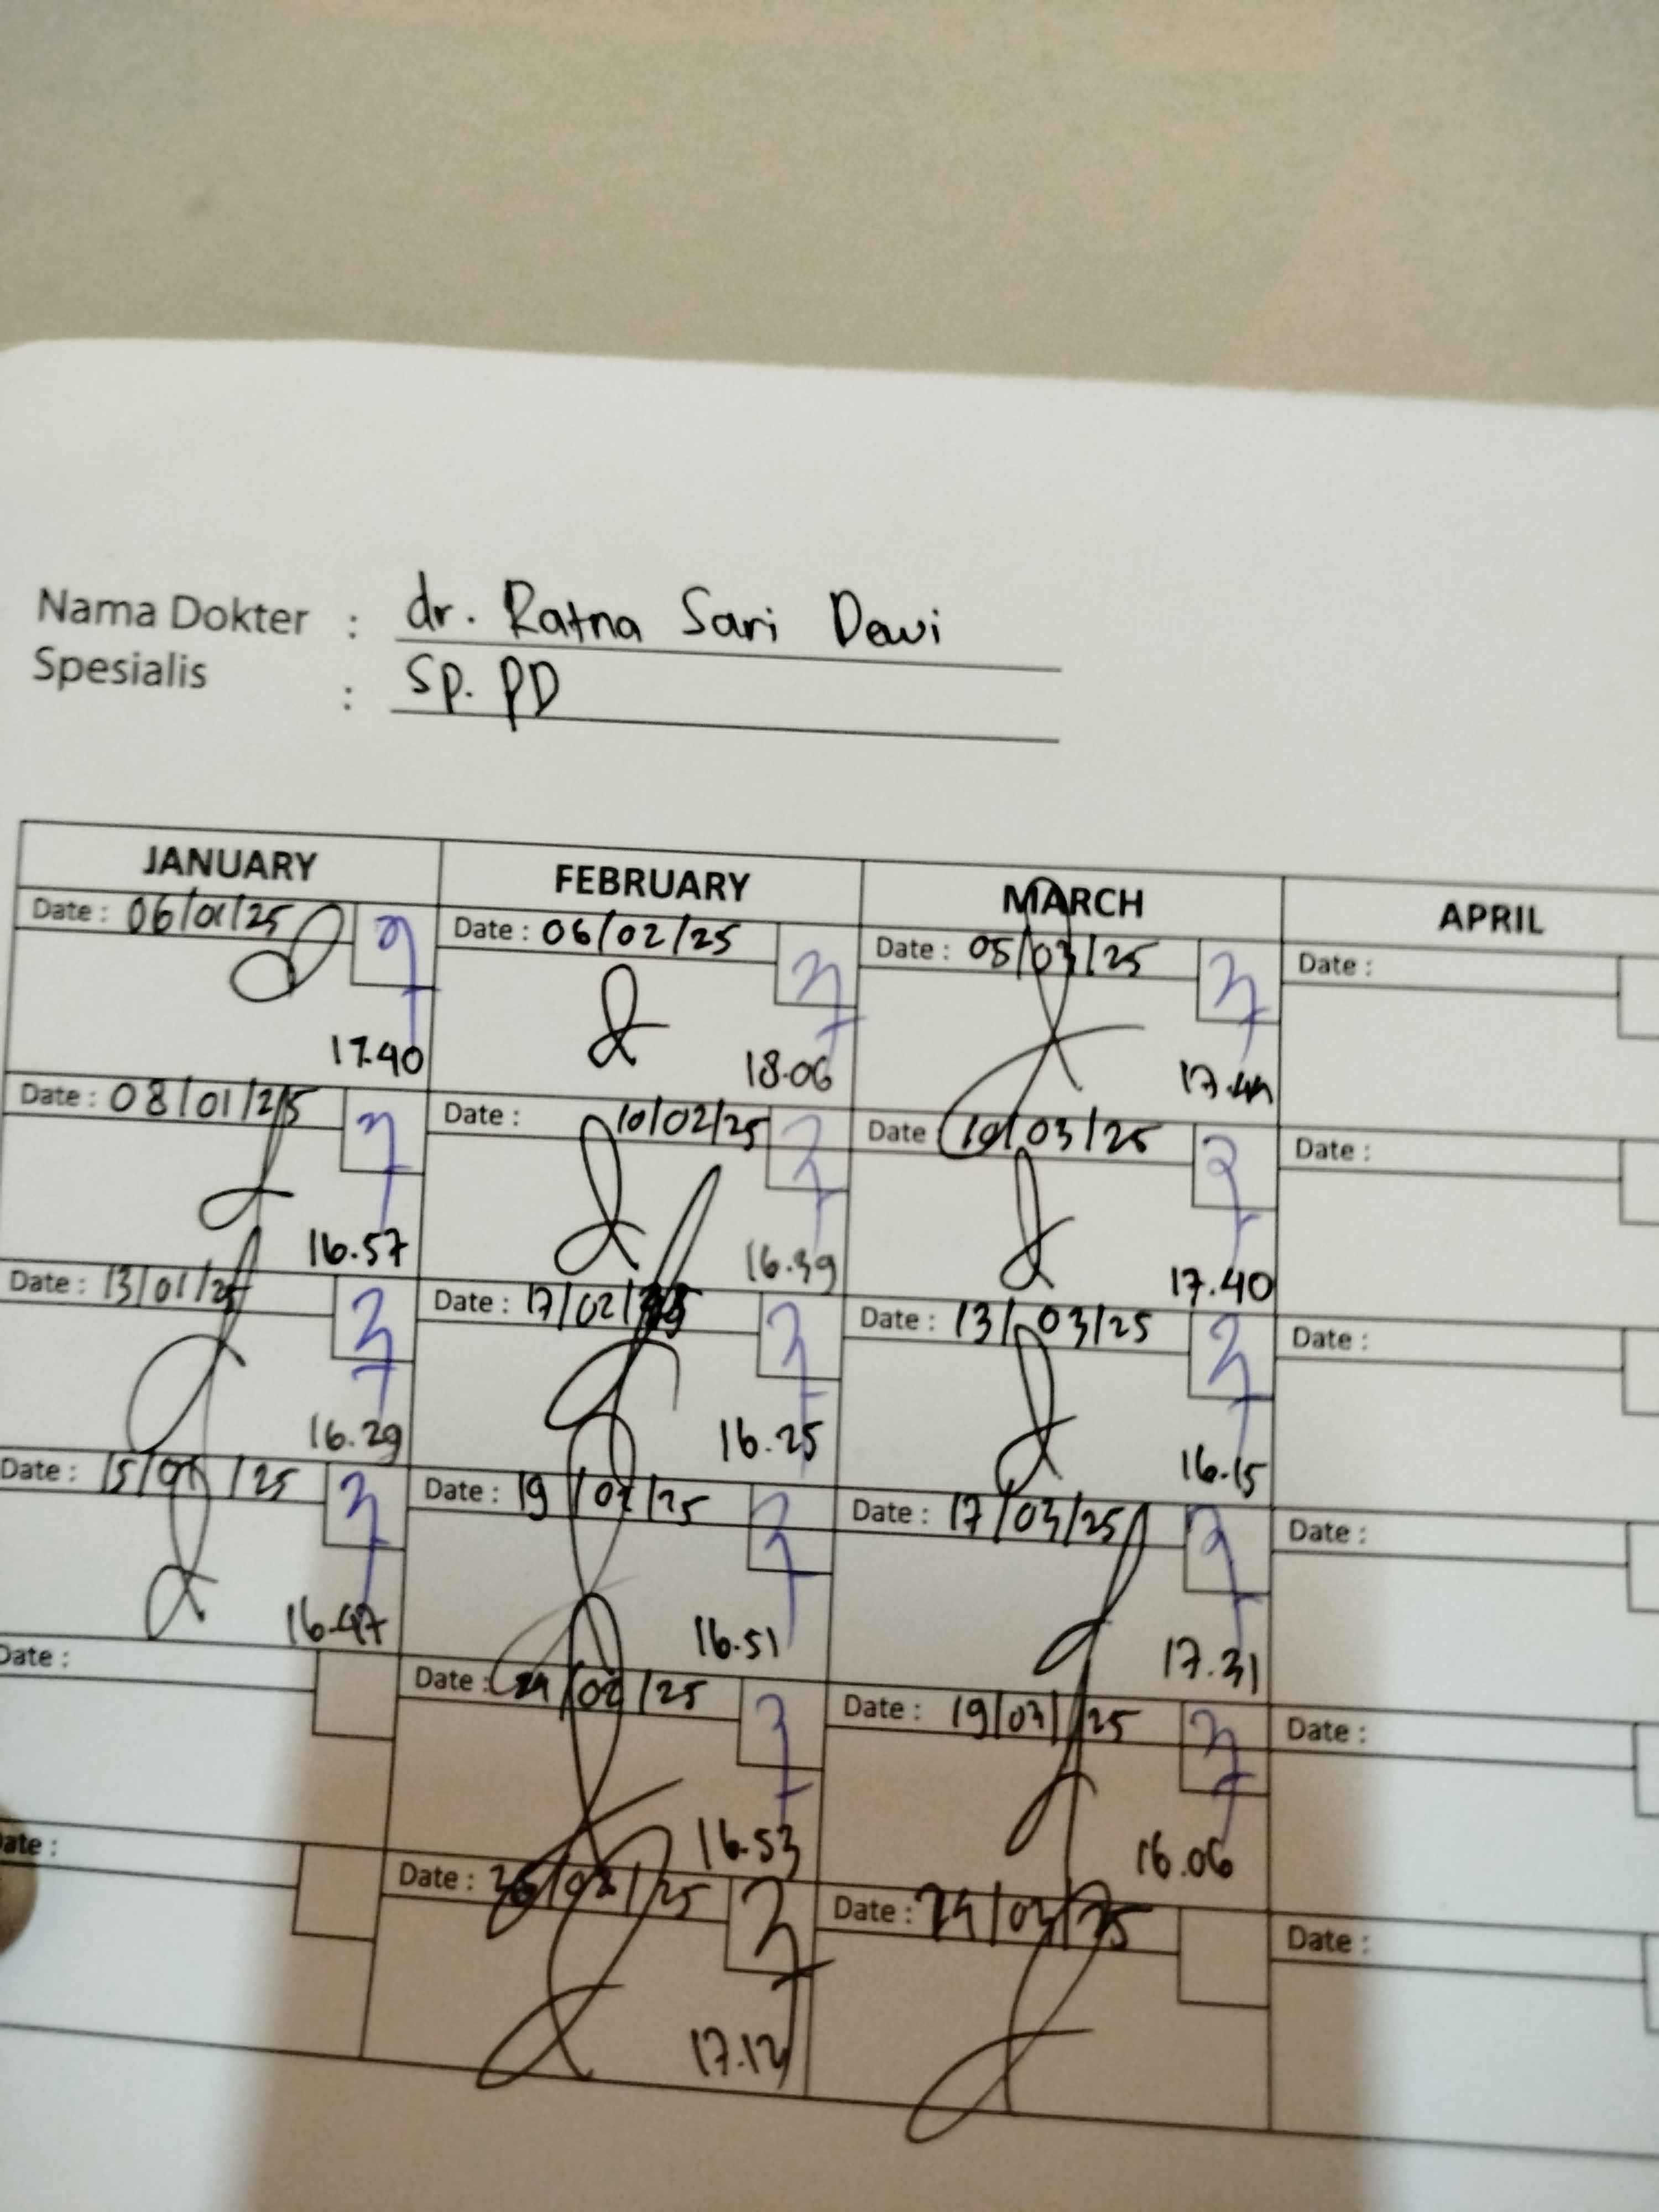 Nama Dokter : dr. Ratna Sari Dewi
Spesialis : Sp. PD
JANUARY FEBRUARY MARCH APRIL
Date : 06/01/25 Date : 06/02/25 Date : 05/03/25 Date :
17.40 18.06 17.44
Date : 08/01/25 Date : 10/02/25 Date 10/03/25 Date :
16.57 16.39 17.40
Date : 13/01/25 Date : 17/02/25 Date : 13/03/25 Date :
16.29 16.25 16.15
Date : 15/01/25 Date : 19/02/25 Date : 17/03/25 Date :
16.47 16.51 17.31
Date : Date : 24/02/25 Date : 19/03/25 Date :
16.53 16.06
ate : Date : 26/02/25 Date : 24/03/25 Date :
17.12